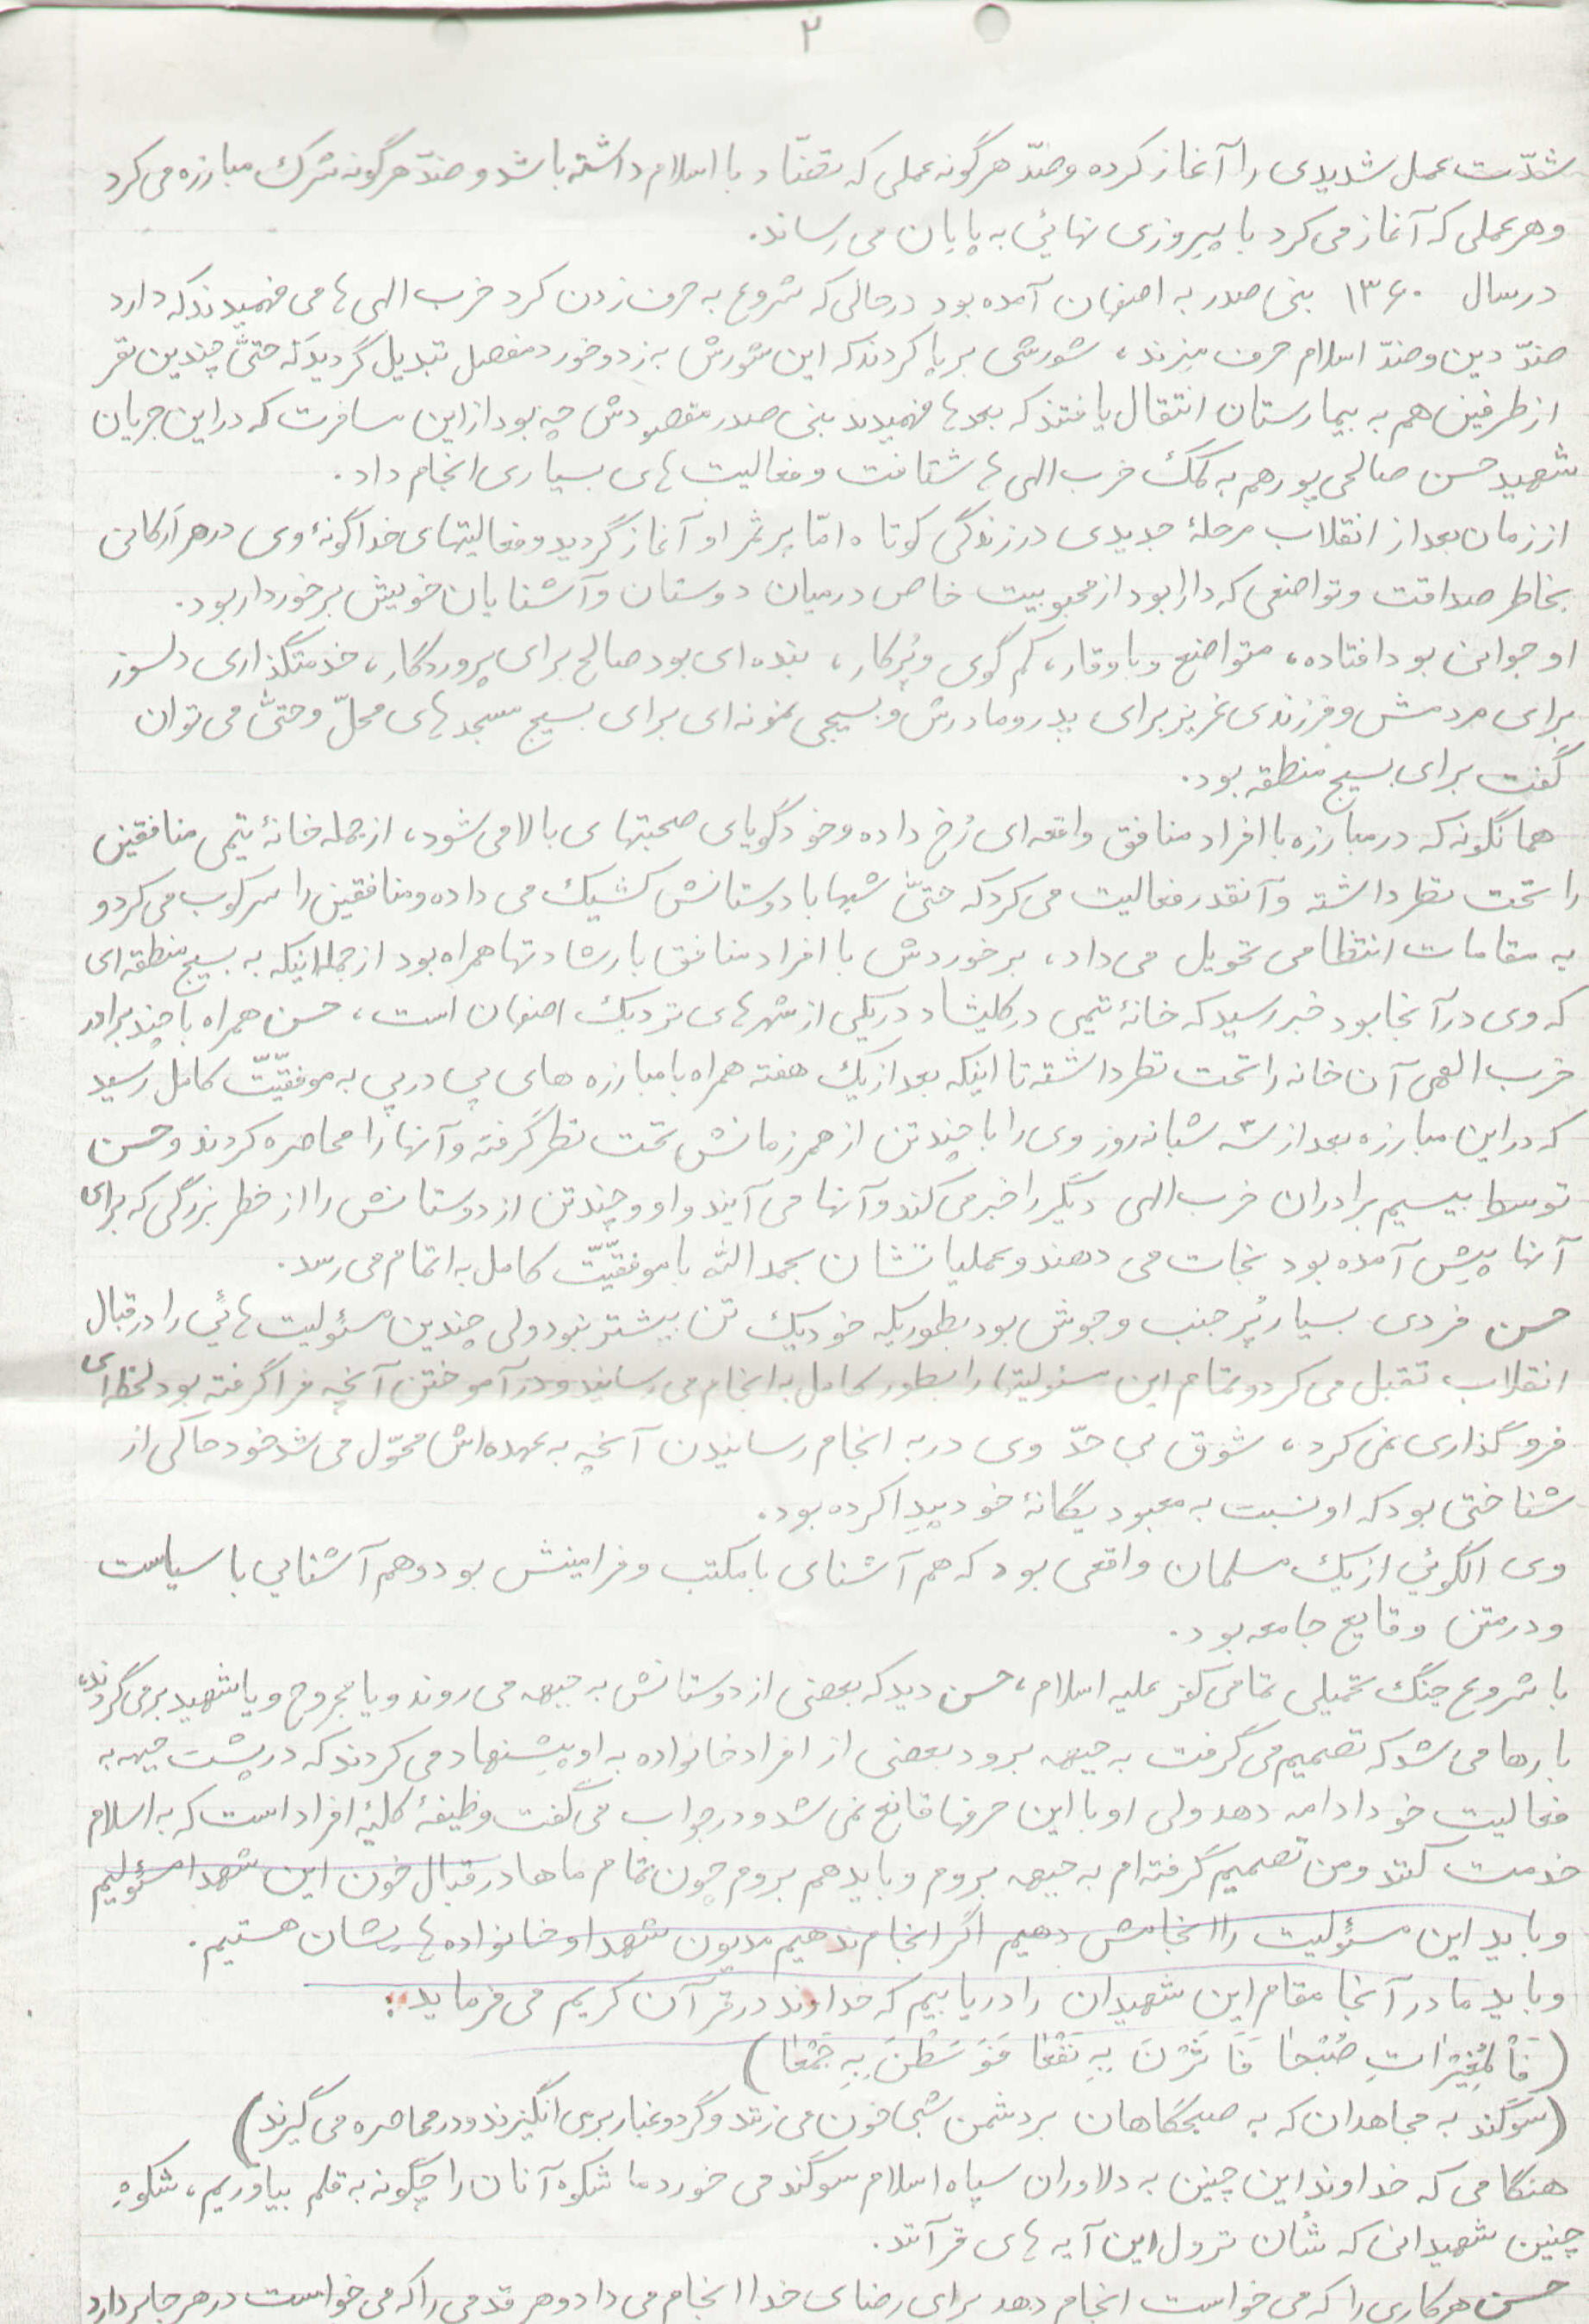 ۲
شدّت عمل شدیدی را آغاز کرده و ضدّ هرگونه عملی که تضّاد با اسلام داشته باشد و ضدّ هرگونه شرک مبارزه می کرد
و هر عملی که آغاز می کرد با پیروزی نهائی به پایان می رساند.
در سال ۱۳۶۰ بنی صدر به اصفهان آمده بود در حالی که شروع به حرف زدن کرد حزب الهی ها می فهمیدند که دارد
ضدّ دین و ضدّ اسلام حرف میزند، شورشی برپا کردند که این شورش به زد و خورد مفصل تبدیل گردید که حتّی چندین نفر
از طرفین هم به بیمارستان انتقال یافتند که بعدها فهمیدند بنی صدر مقصودش چه بود از این مسافرت که در این جریان
شهید حسن صالحی پور هم به کمک حزب الهی ها شتافت و فعالیت های بسیاری انجام داد.
از زمان بعد از انقلاب مرحلهٔ جدیدی در زندگی کوتاه امّا پر ثمر او آغاز گردید و فعالیتهای خداگونهٔ وی در هر ارکانی
بخاطر صداقت و تواضعی که دارا بود از محبوبیت خاص در میان دوستان و آشنایان خویش برخوردار بود.
او جوانی بود افتاده، متواضع و با وقار، کم گوی و پُرکار، بنده ای بود صالح برای پروردگار، خدمتگذاری دلسوز
برای مردمش و فرزندی عزیز برای پدر و مادرش و بسیجی نمونه ای برای بسیج مسجدهای محلّ و حتّی می توان
گفت برای بسیج منطقه بود.
همانگونه که در مبارزه با افراد منافق واقعه ای رُخ داده و خود گویای صحبتهای بالا می شود، از جمله خانهٔ تیمی منافقین
را تحت نظر داشته و آنقدر فعالیت می کرد که حتیّ شبها با دوستانش کشیک می داده و منافقین را سرکوب می کرد و
به مقامات انتظامی تحویل می داد، برخوردش با افراد منافق با رشادتها همراه بود از جمله اینکه به بسیج منطقه ای
که وی در آنجا بود خبر رسید که خانهٔ تیمی در کلیشاد در یکی از شهرهای نزدیک اصفهان است، حسن همراه با چند برادر
حزب الهی آن خانه را تحت نظر داشته تا اینکه بعد از یک هفته همراه با مبارزه های پی در پی به موفقیّت کامل رسید
که در این مبارزه بعد از سه شبانه روز وی را با چند تن از همرزمانش تحت نظر گرفته و آنها را محاصره کردند و حسن
توسط بیسیم برادران حزب الهی دیگر را خبر می کند و آنها می آیند و او و چند تن از دوستانش را از خطر بزرگی که برای
آنها پیش آمده بود نجات می دهند و عملیاتشان بحمد الله با موفقیّت کامل به اتمام می رسد.
حسن فردی بسیار پُر جنب و جوش بود بطوریکه خود یک تن بیشتر نبود ولی چندین مسئولیت هائی را در قبال
انقلاب تقبل می کرد و تمام این مسئولیتها را بطور کامل به انجام می رسانید و در آموختن آنچه فرا گرفته بود لحظه ای
فروگذاری نمی کرد، شوق بی حدّ وی در به انجام رسانیدن آنچه به عهده اش محوّل می شد خود حاکی از
شناختی بود که او نسبت به معبود یگانهٔ خود پیدا کرده بود.
وی الگوئی از یک مسلمان واقعی بود که هم آشنای با مکتب و فرامینش بود و هم آشنایی با سیاست
و در متن وقایع جامعه بود.
با شروع جنگ تحمیلی تمامی کفر علیه اسلام، حسن دید که بعضی از دوستانش به جبهه می روند و یا مجروح و یا شهید برمی گردند،
بارها می شد که تصمیم می گرفت به جبهه برود بعضی از افراد خانواده به او پیشنهاد می کردند که در پشت جبهه به
فعالیت خود ادامه دهد ولی او با این حرفها قانع نمی شد و در جواب می گفت وظیفهٔ کلیهٔ افراد است که به اسلام
خدمت کنند و من تصمیم گرفته ام به جبهه بروم و باید هم بروم چون تمام ماها در قبال خون این شهدا مسئولیم
و باید این مسئولیت را انجامش دهیم اگر انجام ندهیم مدیون شهدا و خانواده هایشان هستیم.
و باید ما در آنجا مقام این شهیدان را دریابیم که خداوند در قرآن کریم می فرماید:
(فَالْمُغیٖراتِ صُبْحاً فَاَثَرْنَ بِهِ نَقْعاً فَوَسَطْنَ بِهِ جَمْعاً)
(سوگند به مجاهدان که به صبحگاهان بر دشمن شبیخون می زنند و گرد و غبار بر می انگیزند و در محاصره می گیرند)
هنگامی که خداوند این چنین به دلاوران سپاه اسلام سوگند می خورد ما شکوه آنان را چگونه به قلم بیاوریم، شکوهِ
چنین شهیدانی که شأن نزول این آیه های قرآنند.
حسن هر کاری را که می خواست انجام دهد برای رضای خدا انجام می داد و هر قدمی را که می خواست در هر جا بردارد